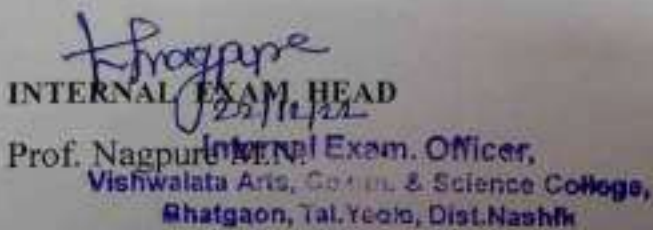 INTERNAL EXAM HEAD
22/12/22
Prof. Nagpure M.N.
Internal Exam. Officer,
Vishwalata Arts, Comm. & Science College,
Bhatgaon, Tal.Yeola, Dist.Nashik